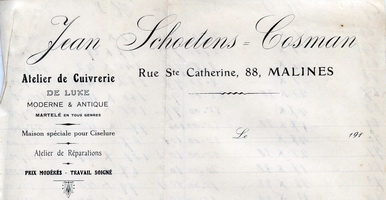 Jean Schoetens = Cosman
Atelier de Cuivrerie
DE LUXE
MODERNE & ANTIQUE
MARTELÉ EN TOUS GENRES
Maison spéciale pour Ciselure
Atelier de Réparations
PRIX MODÉRÉS - TRAVAIL SOIGNÉ
Rue Ste Catherine, 88, MALINES
Le 191